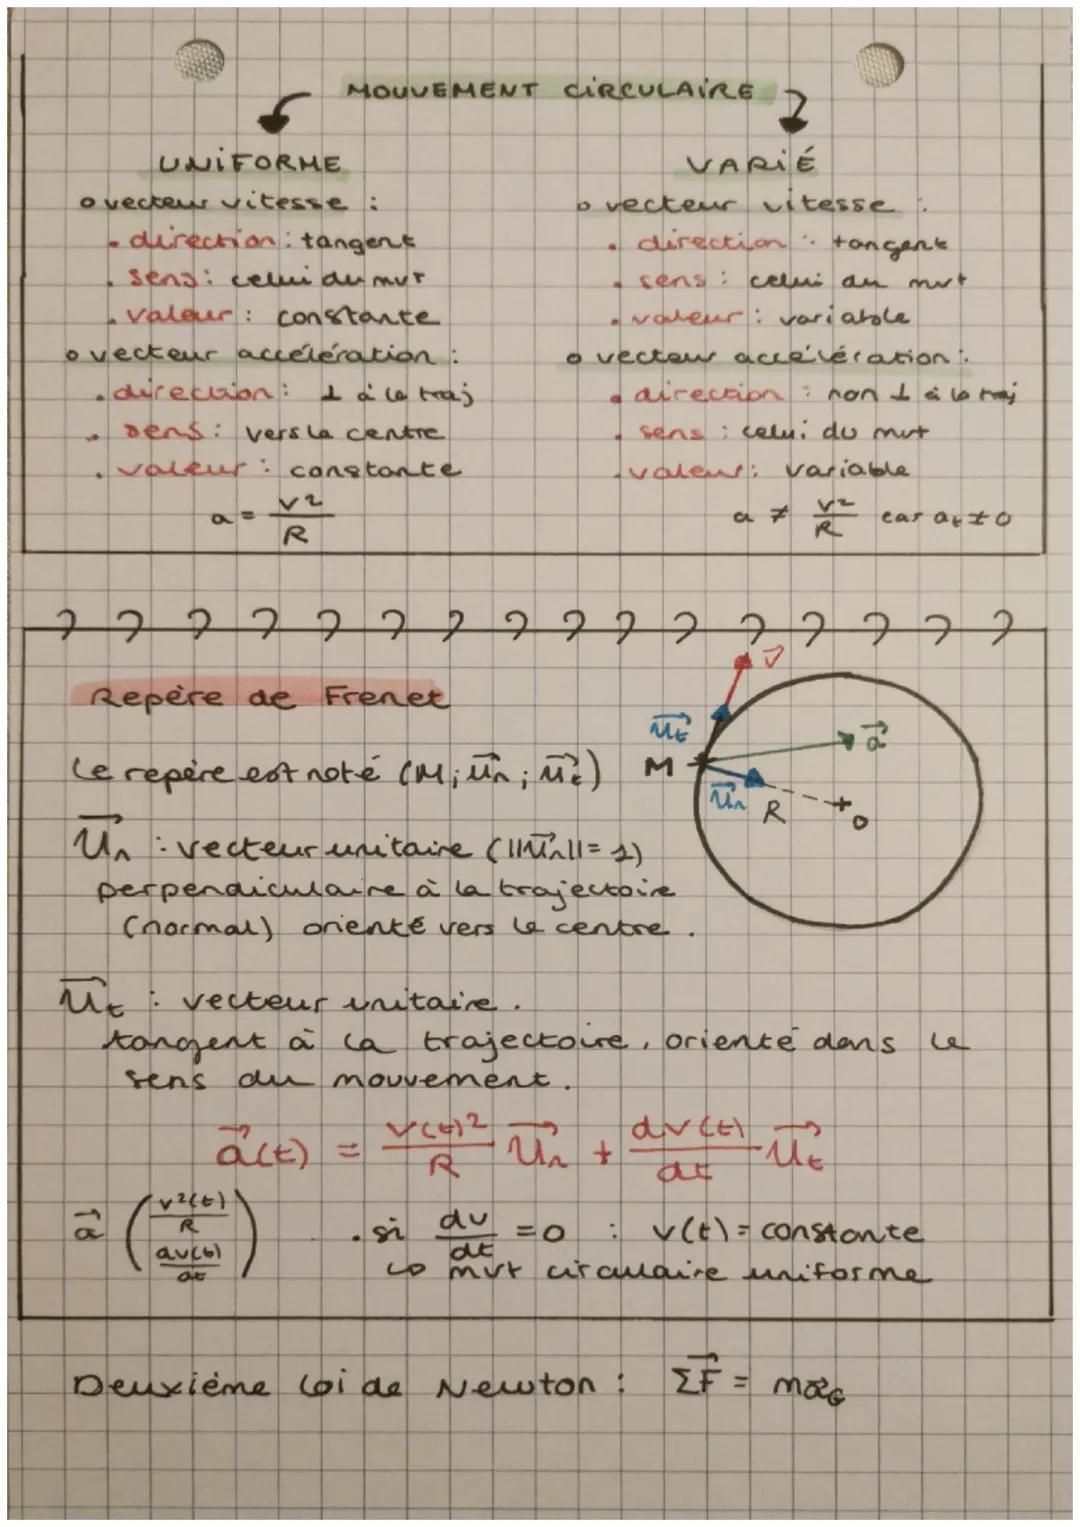 MOUVEMENT CIRCULAIRE
UNIFORME
o vecteur vitesse :
• direction : tangent
• sens : celui du mvt
• valeur : constante
o vecteur accélération :
• direction : ⊥ à la traj
• sens : vers la centre
• valeur : constante
a = v²/R
VARIÉ
o vecteur vitesse :
• direction : tangent
• sens : celui du mvt
• valeur : variable
o vecteur accélération :
• direction : non ⊥ à la traj
• sens : celui du mvt
• valeur : variable
a ≠ v²/R car aₜ ≠ 0
Repère de Frenet
Le repère est noté (M; u⃗n; u⃗t)
u⃗n : vecteur unitaire (||u⃗n|| = 1)
perpendiculaire à la trajectoire
(normal) orienté vers le centre.
v⃗
u⃗t
a⃗
M
u⃗n
R
O
u⃗t : vecteur unitaire.
tangent à la trajectoire, orienté dans le
sens du mouvement.
a⃗(t) = v(t)²/R u⃗n + dv(t)/dt u⃗t
a⃗ (v²(t)/R
dv(t)/dt)
• si dv/dt = 0 : v(t) = constante
↳ mvt circulaire uniforme
Deuxième loi de Newton : ΣF⃗ = ma⃗G